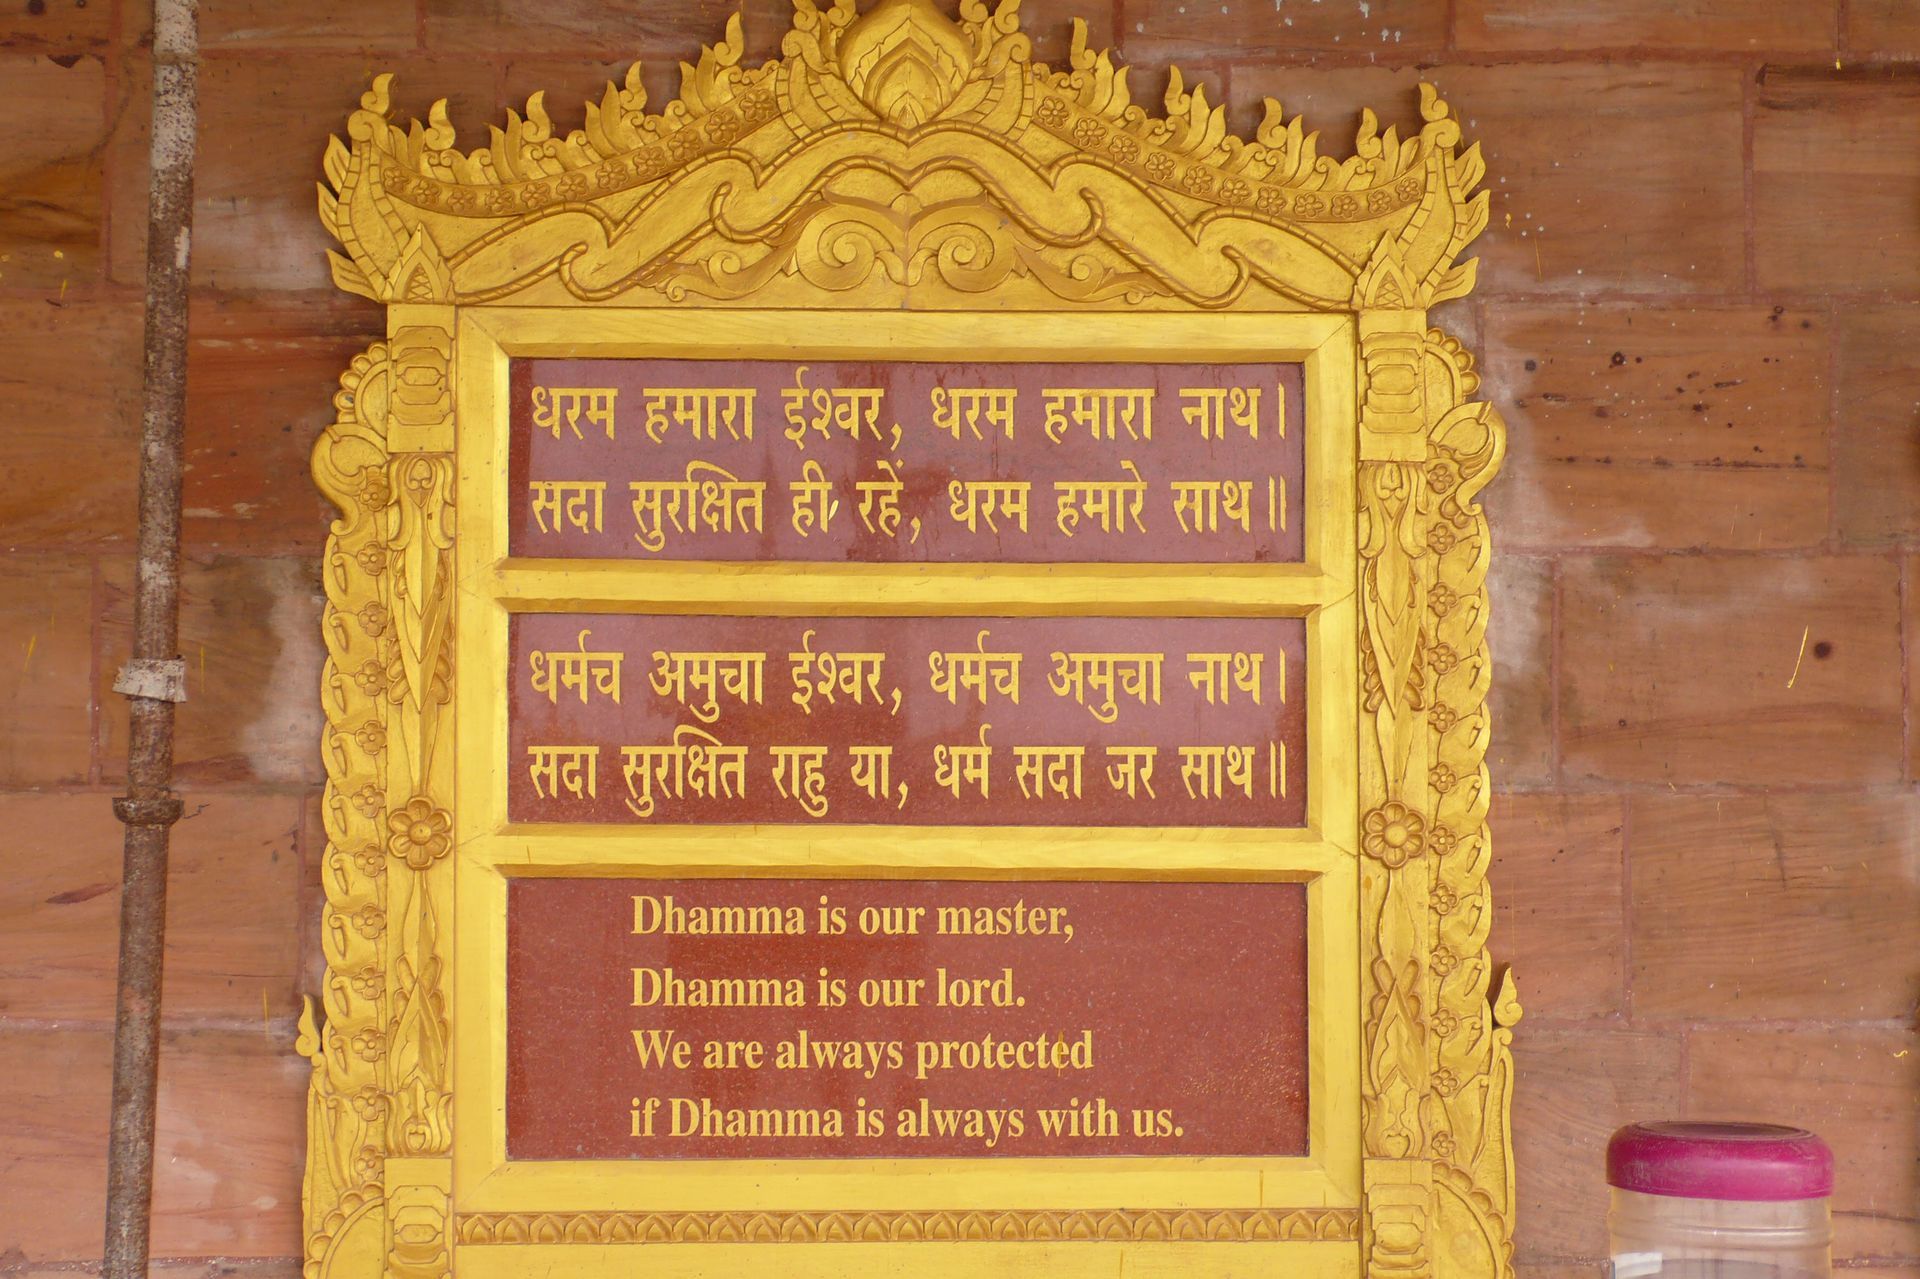 धरम हमारा ईश्वर, धरम हमारा नाथ।
सदा सुरक्षित ही रहें, धरम हमारे साथ॥
धर्मच अमुचा ईश्वर, धर्मच अमुचा नाथ।
सदा सुरक्षित राहु या, धर्म सदा जर साथ॥
Dhamma is our master,
Dhamma is our lord.
We are always protected
if Dhamma is always with us.